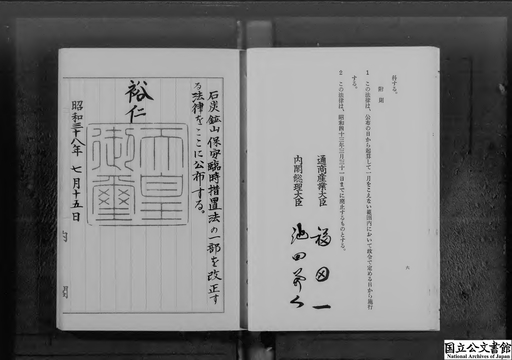 科する。
附則
1 この法律は、公布の日から起算して一月をこえない範囲内において政令で定める日から施行
する。
2 この法律は、昭和四十三年三月三十一日までに廃止するものとする。
通商産業大臣 福田一
内閣総理大臣 池田勇人
六
石炭鉱山保安臨時措置法の一部を改正す
る法律をここに公布する。
裕仁
天皇
御璽
昭和三十八年 七月十五日
国立公文書館
National Archives of Japan